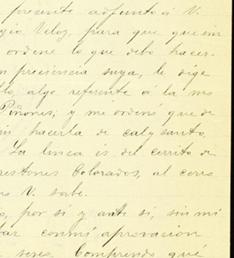 presente adjunto á V.
Veloz, para que que en
ordene lo que debo hacer.
n presciencia suya, le dige
algo referente á la mo
Piñones, y me ordenó que de
hacerla de cal y canto,
La linea es del cerrito de
restones Colorados, al cerro
V. sabe.
, por sí y ante sí, sin mi
con mi aprovacion
seres. Comprendo qué